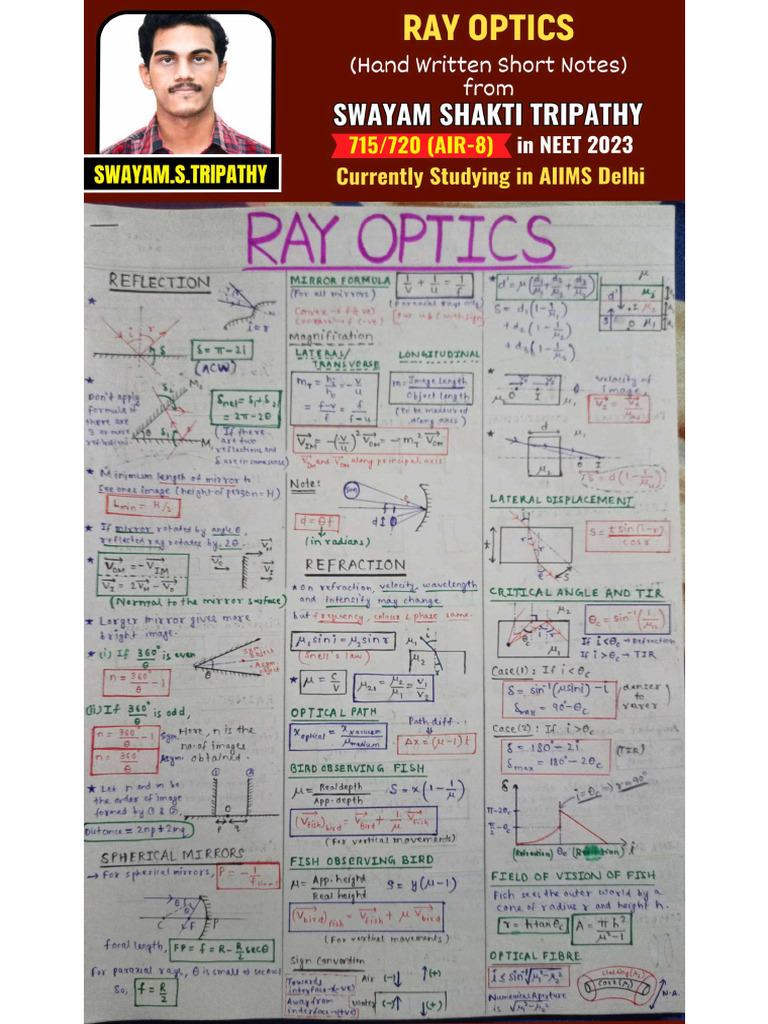 RAY OPTICS
(Hand Written Short Notes)
from
SWAYAM SHAKTI TRIPATHY
715/720 (AIR-8) in NEET 2023
Currently Studying in AIIMS Delhi
SWAYAM.S.TRIPATHY
RAY OPTICS
REFLECTION
δ = π-2i
(ACW)
Don't apply
formula if
there are
3 or more
reflection
δnet = δ₁+δ₂
= 2π-2θ
(If there
are two
reflections and
δ are in same sense)
★ Minimum length of mirror to
see ones image (height of person = H)
Lmin = H/2
★ If mirror rotated by angle θ,
reflected ray rotates by 2θ.
(Normal to the mirror surface)
★ Larger mirror gives more
bright image.
★ (i) If 360°/θ is even
n = 360°/θ - 1
(ii) If 360°/θ is odd,
n = 360°/θ - 1 Sym.
n = 360°/θ Asym.
Here, n is the
no. of images
obtained.
★ Let n and m be
the order of image
formed by ① & ②,
Distance = 2np ± 2mq
SPHERICAL MIRRORS
→ For spherical mirrors,
focal length, FP = f = R - R/2 secθ
For paraxial rays, θ is small
So, f = R/2
MIRROR FORMULA
(For all mirrors)
1/v + 1/u = 1/f
(Paraxial rays only)
Convex → f (+ve)
Concave → f (-ve)
(Put u & f with sign)
Magnification
LATERAL/
TRANSVERSE
mT = hi/ho = -v/u
= f-v/f = f/f-u
LONGITUDINAL
m = Image length/Object length
(to be measured
along axis)
VIM = -(v/u)² VOM = -mT² VOM
VIM and VOM along principal axis
Note:
Sun
d = θf
(in radians)
REFRACTION
★ On refraction, velocity, wavelength
and intensity may change
but frequency, colour & phase same.
μ₁sini = μ₂sinr
(Snell's law)
★ μ = c/v
μ₂₁ = μ₂/μ₁ = v₁/v₂
OPTICAL PATH
Xoptical = Xvacuum/μmedium
Path diff.
Δx = (μ-1)t
BIRD OBSERVING FISH
μ = Real depth/App. depth
S = x(1 - 1/μ)
(Vfish)bird = Vbird + 1/μ Vfish
(For vertical movements)
FISH OBSERVING BIRD
μ = App. height/Real height
S = y(μ-1)
(Vbird)fish = Vfish + μ Vbird
(For vertical movements)
Sign Convention
Towards
interface → (-ve)
Away from
interface → (+ve)
Air (-)↓ ↑(+)
Water (-)↑ ↓(+)
d' = μ(d₁/μ₁ + d₂/μ₂ + d₃/μ₃)
S = d₁(1 - 1/μ₁)
+ d₂(1 - 1/μ₂)
+ d₃(1 - 1/μ₃)
velocity of
image
LATERAL DISPLACEMENT
S = t sin(i-r)/cos r
CRITICAL ANGLE AND TIR
θc = sin⁻¹(1/μ)
If i<θc → Refraction
If i>θc → TIR
Case (1): If i<θc
δ = sin⁻¹(μ sini) - i
δmax = 90° - θc
denser
to
rarer
Case (2): If i>θc
δ = 180° - 2i
δmax = 180° - 2θc
(TIR)
i = θc → r = 90°
π-2θc
π/2-θc
(Refraction) θc
FIELD OF VISION OF FISH
Fish sees the outer world by a
cone of radius r and height h.
r = h tanθc
A = πh²/μ²-1
OPTICAL FIBRE
i ≤ sin⁻¹√μ₁²-μ₂²
Numerical Aperture
is √μ₁²-μ₂²
Cladding (μ₂)
Core (μ₁)
N.A.